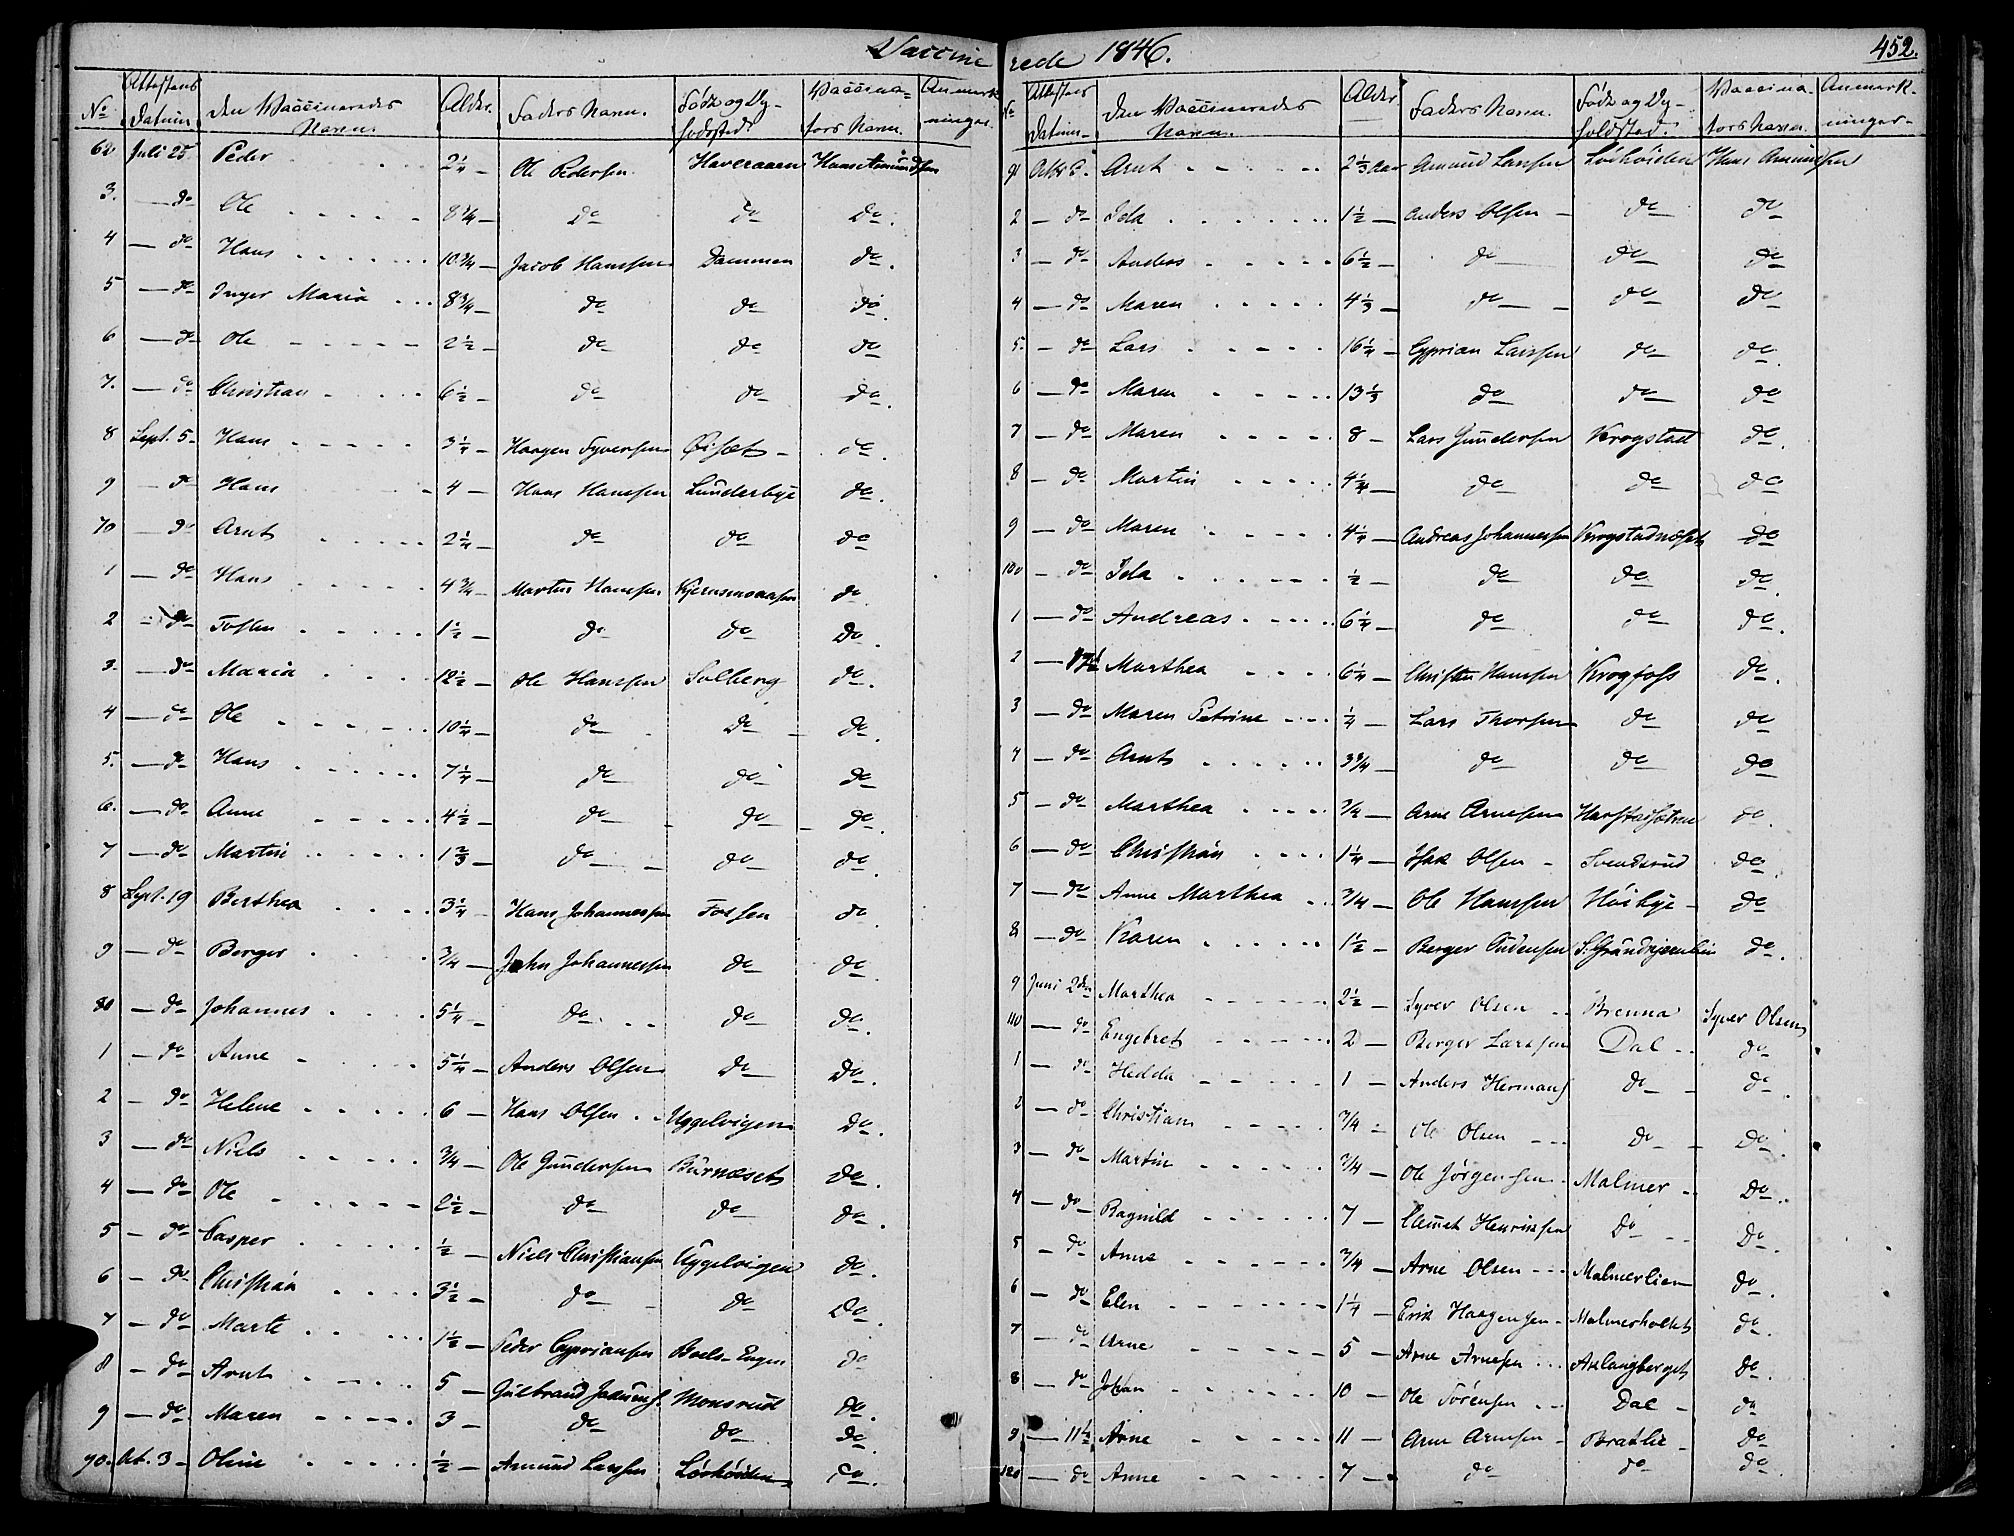 Vaccinerede 1846.
452.
No | Attestens Datum | Den Vaccineredes Navn. | Alder. | Faders Navn. | Føde og Opholdsted | Vaccinators Navn. | Anmærkninger.
62 Juli 25 Peder 2 1/4 Ole Pedersen Haveraaen Hans Amundsen
3. do Ole 8 3/4 do do do.
4 do Hans 10 3/4 Jacob Hanssen Dammen do.
5 do Inger Maria 8 3/4 do do do.
6 do Ole 2 1/2 do do do
7. do Christian 6 1/2 do do do.
8 Sept. 5 Hans 3 1/4 Haagen Syversen Øiset do.
9 do Hans 4 Hans Hanssen Lunderbye do.
70 do Arnt 2 1/4 do do do
1 do Hans 4 3/4 Martin Hanssen Kjernsmoaasen do.
2 do Tosten 1 1/2 do do do.
3. do Maria 12 1/2 Ole Hanssen Solberg do.
4 do Ole 10 1/4 do do do.
5. do Hans 7 1/4 do do do
6. do Anne 4 1/2 do do do.
7 do Martin 1 2/3 do do do.
8 Sept. 19 Berthea 3 1/4 Hans Johannessen Fossen do
9 do Berger 3/4 John Johannessen do do.
80 do Johannes 5 1/4 do do do.
1 do Anne 5 1/4 Anders Olsen do do.
2 do Helene 6 Hans Olsen Uggelvigen do.
3 do Niels 3/4 Ole Gundersen Burnæset do.
4 do Ole 2 1/2 do do do.
5 do Casper 1/2 Niels Christiansen Uggelvigen do.
6 do Christian 3 1/2 do do do.
7 do Marte 1 1/2 Peder Cypriansen Boels-Engen do
8 do Arnt 5 Gulbrand Monsrud do.
9 do Maren 3 do do do
90. Oct. 3 Oline 1/2 Amund Larssen Lørhøiden do.
No | Attestens Datum | Den Vaccineredes Navn. | Alder | Faders Navn. | Føde og Opholdsted. | Vaccinators Navn. | Anmærkninger.
91 Octbr 6. Arnt 2 1/3 Aar Amund Larssen Lørhøiden Hans Amundsen
2 do Ida 1 1/2 Anders Olsen do do
3 do Anders 6 1/2 do do do
4 do Maren 4 1/3 do do do
5. do Lars 16 1/4 Cyprian Larssen do do.
6 do Maren 13 1/3 do do do
7 do Maren 8 Lars Gundersen Krogstad do.
8 do Martin 4 1/4 do do do
9 do Maren 4 1/4 Andreas Johannessen Krogstadnæset do
100 do Ida 1/2 do do do.
1 do Andreas 6 1/4 do do do.
2 17 Marthea 6 1/4 Christen Hanssen Krogfoss do.
3 do Maren Petrine 1/4 Lars Thorsen do do
4 do Arnt 3 3/4 do do do
5 do Marthea 3/4 Arne Arnesen Harstadsætren do.
6 do Christian 1 1/4 Isak Olsen Svendsrud do.
7 do Anne Marthea 3/4 Ole Hanssen Høibye do
8 do Karen 1 1/2 Berger Andersen S. Grundkjernlien do.
9 Juni 2den Marthea 2 1/2 Syver Olsen Brenna Syver Olsen
110 do Engebret 2 Berger Larssen Dal do
1 do Hedda 1 Anders Hermans do do
2 do Christian 3/4 Ole Olsen do do.
3 do Martin 3/4 Ole Jørgensen Malmer do.
4 do Ragnild 7 Clemet Henriksen do do.
5 do Anne 3/4 Arne Olsen Malmerlien do.
6 do Elen 1 1/4 Erik Haagensen Malmerholtet do.
7 do Arne 5 Arne Arnesen Aslangberget do.
8 do Johan 10 Ole Sørensen Dal do
9 11te Arne 11 Arne Arnesen Bratlie do
120 do Anne 7 do do do.